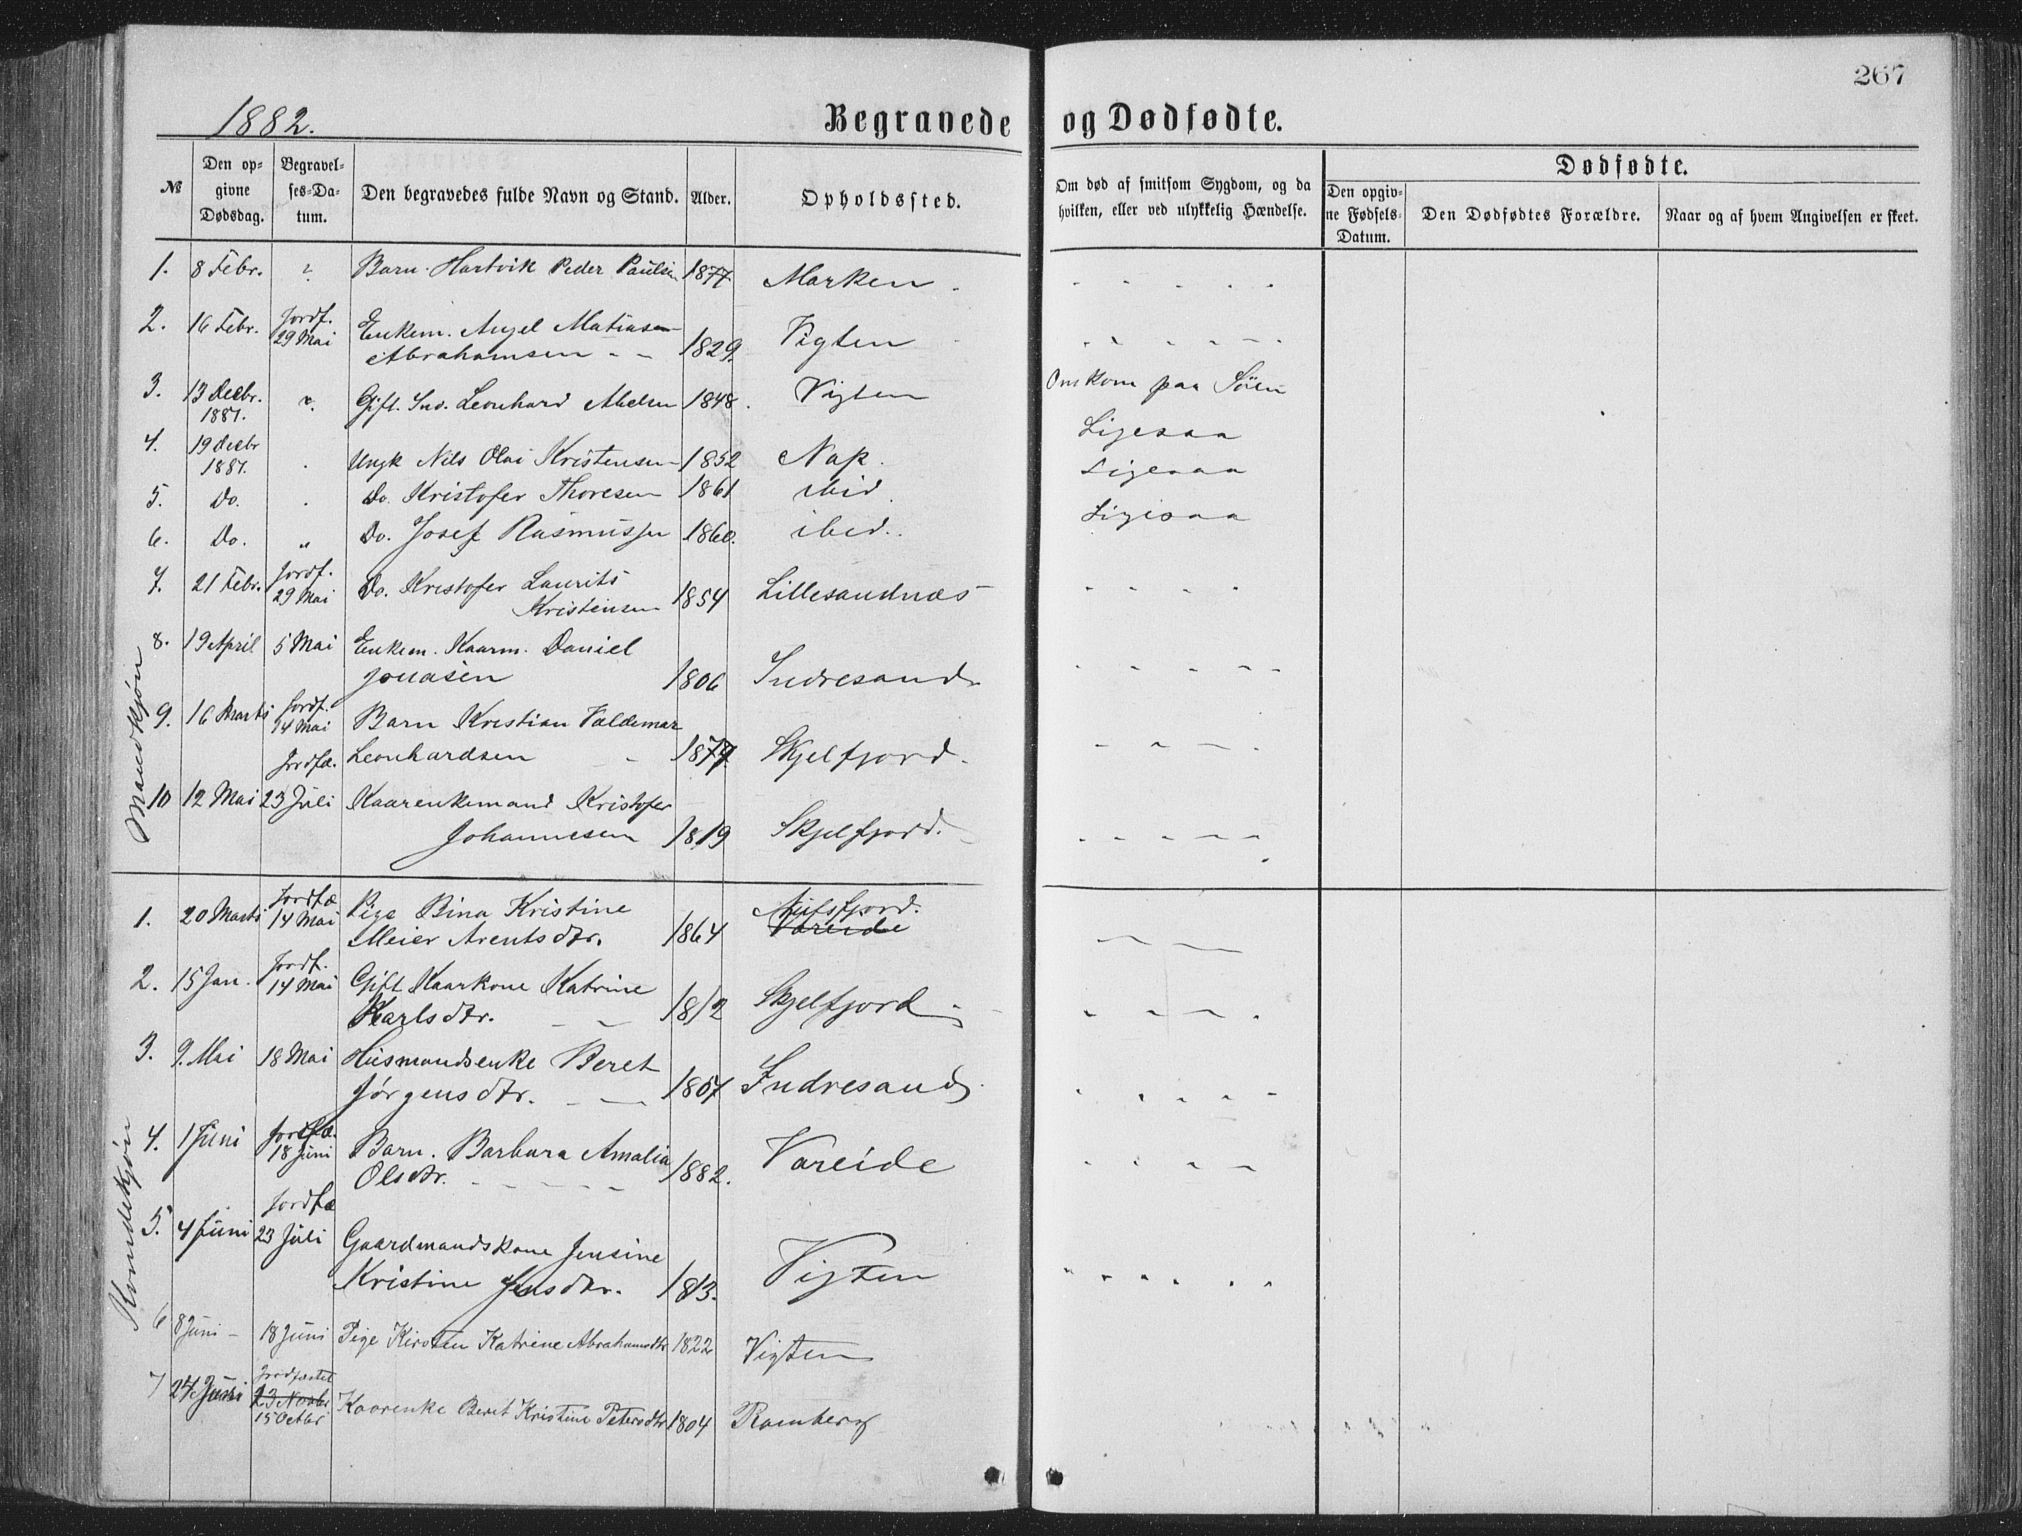 267
1882.
Begravede og Dødfødte.
№
Den opgivne Dødsdag.
Begravelses-Datum.
Den begravedes fulde Navn og Stand.
Alder.
Opholdssted.
Om død af smitsom Sygdom, og da hvilken, eller ved ulykkelig Hændelse.
Dødfødte.
Den opgivne Fødsels-Datum.
Den Dødfødtes Forældre.
Naar og af hvem Angivelsen er skeet.
Mandkjøn
1. 8 Febr. Barn Hartvik Peder Paulsen 1877 Marken
2. 16 Febr. Jordf. 29 Mai Enkem. Angel Matiasen
Abrahamsen 1829. Vigten
3. 13 Decbr. 1881. Gift. Ind. Leonhard Abelsen 1848. Vigten Omkom paa Søen
4. 19 Decbr 1881. Ungk Nils Olai Kristensen 1852 Nap. Ligesaa
5. Do. Do. Kristofer Thoresen 1861 ibid Ligesaa
6. Do. „ Do. Josef Rasmussen 1860. ibid. Ligesaa
7. 21 Febr. Jordf. 29 Mai Do. Kristofer Laurits
Kristensen 1854 Lillesandnæs
8. 19 April 5 Mai Enkem. Kaarm. Daniel
Jonasen 1806 Indresand
9. 16 Marts Jordf. 14 Mai Barn Kristian Valdemar
Leonhardsen Skjelfjord.
10 12 Mai Jordfæ. 23 Juli Kaarenkemand Kristofer
Johannesen 1819 Skjelfjord.
Kvindekjøn
1. 20 Marts Jordfæ 14 Mai Pige Bina Kristine
Meier Arentsdtr. 1864 Nufsfjord. Vareide
2. 15 Jan. Jordf. 14 Mai Gift Kaarkone Katrine
Karlsdtr. 1812 Skjelfjord
3. 9. Mai 18 Mai Husmandsenke Beret
Jørgensdtr. 1807 Indresand
4. 1 Juni Jordfæ. 18 Juni Barn. Barbara Amalia
Olsdtr. 1882. Vareide
5. 4 Juni Jordfæ 23 Juli Gaardmandskone Jensine
Kristine Jensdtr. 1813. Vigten
6 8 Juni 18 Juni Pige Kirsten Katrine Abrahamsdtr 1822 Vigten
7 24 Juni Jordfæstet 23 Novbr 15 Octbr Kaarenke Beret Kristine Petersdtr 1804 Ramberg